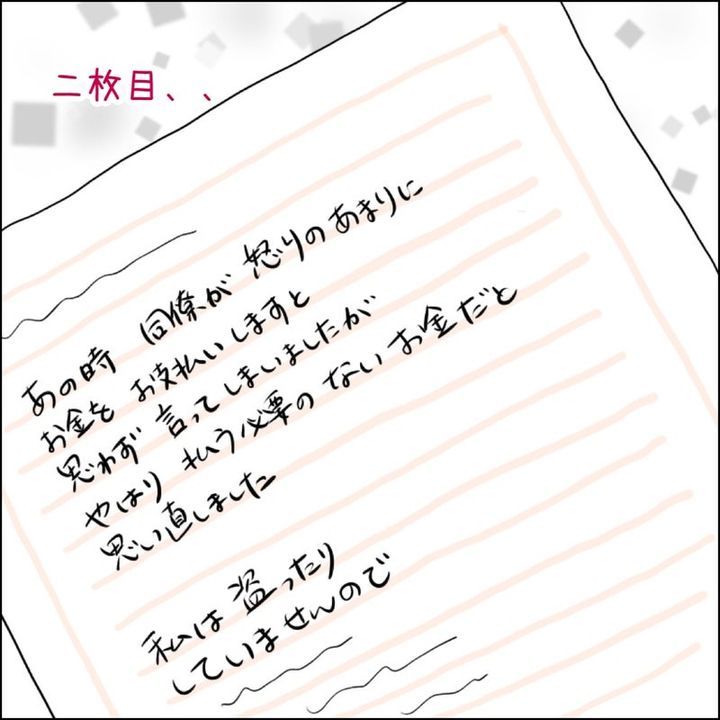 二枚目、、
あの時 同僚が 怒りのあまりに
お金を お支払いしますと
思わず 言ってしまいましたが
やはり 払う必要の ないお金だと
思い直しました
私は 盗ったり
していませんので